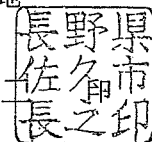 長野県
佐久市
長之印
印